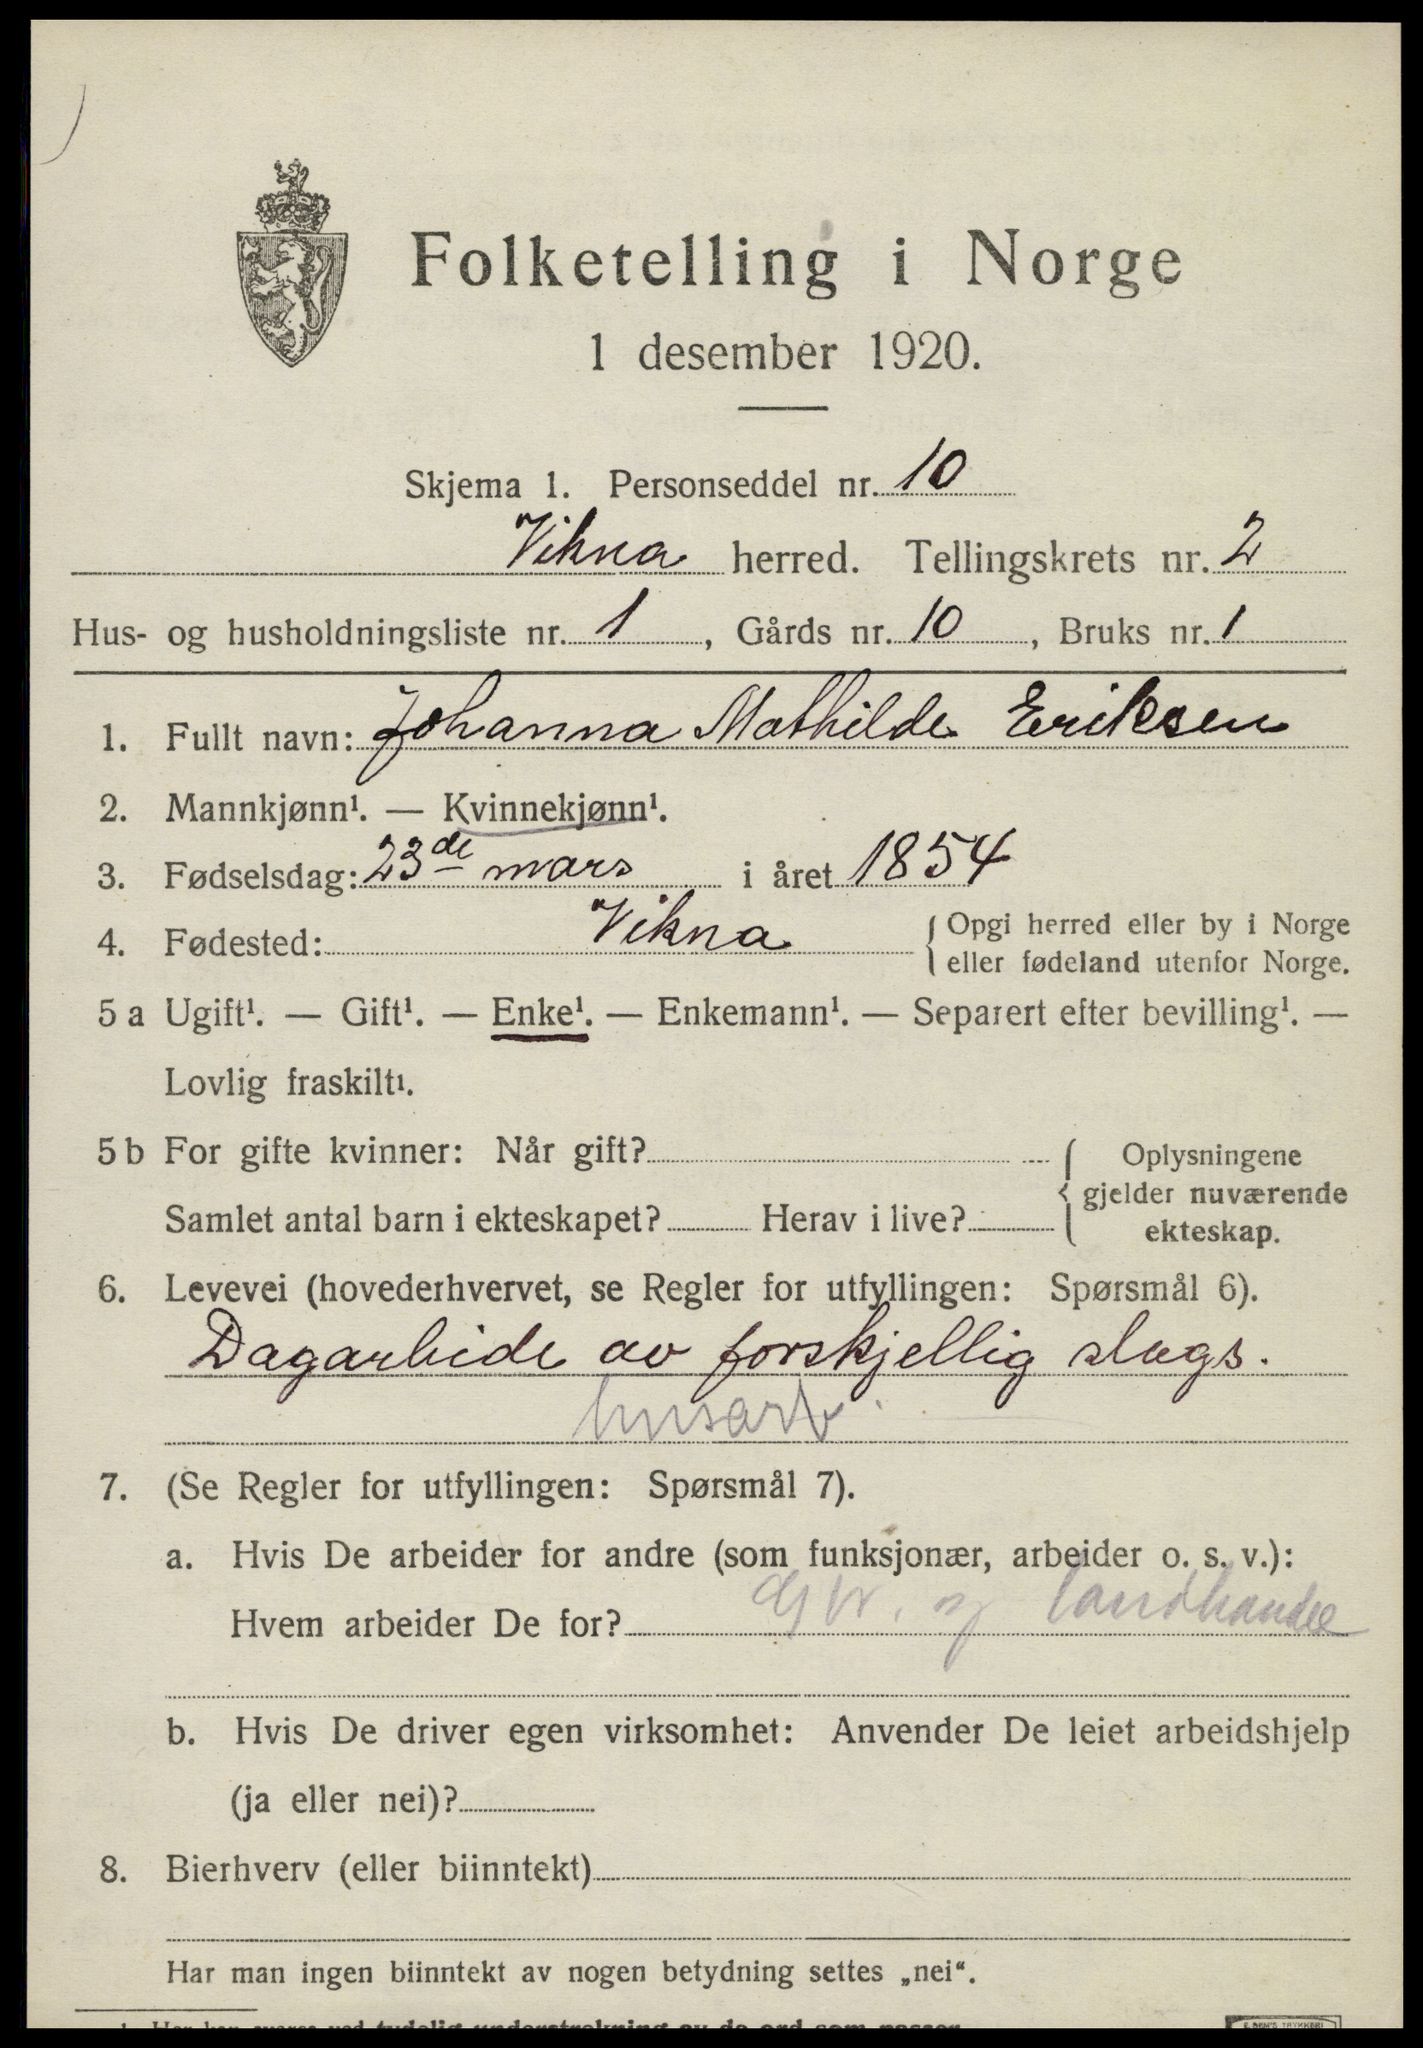 Folketelling i Norge
1 desember 1920.
Skjema 1. Personseddel nr. 10
Vikna herred. Tellingskrets nr. 2
Hus- og husholdningsliste nr. 1, Gårds nr. 10, Bruks nr. 1
1. Fullt navn: Johanna Mathilde Eriksen
2. Mannkjønn¹. — Kvinnekjønn¹.
3. Fødselsdag: 23de mars i året 1854
4. Fødested: Vikna { Opgi herred eller by i Norge
eller fødeland utenfor Norge.
5 a Ugift¹. — Gift¹. — Enke¹. — Enkemann¹. — Separert efter bevilling¹. —
Lovlig fraskilt¹.
5 b For gifte kvinner: Når gift?
Samlet antal barn i ekteskapet? Herav i live?
Oplysningene
gjelder nuværende
ekteskap.
6. Levevei (hovederhvervet, se Regler for utfyllingen: Spørsmål 6).
Dagarbide av forskjellig slags.
husarb.
7. (Se Regler for utfyllingen: Spørsmål 7).
a. Hvis De arbeider for andre (som funksjonær, arbeider o. s. v.):
Hvem arbeider De for? og landhandel
b. Hvis De driver egen virksomhet: Anvender De leiet arbeidshjelp
(ja eller nei)?
8. Bierhverv (eller biinntekt)
Har man ingen biinntekt av nogen betydning settes „nei“.